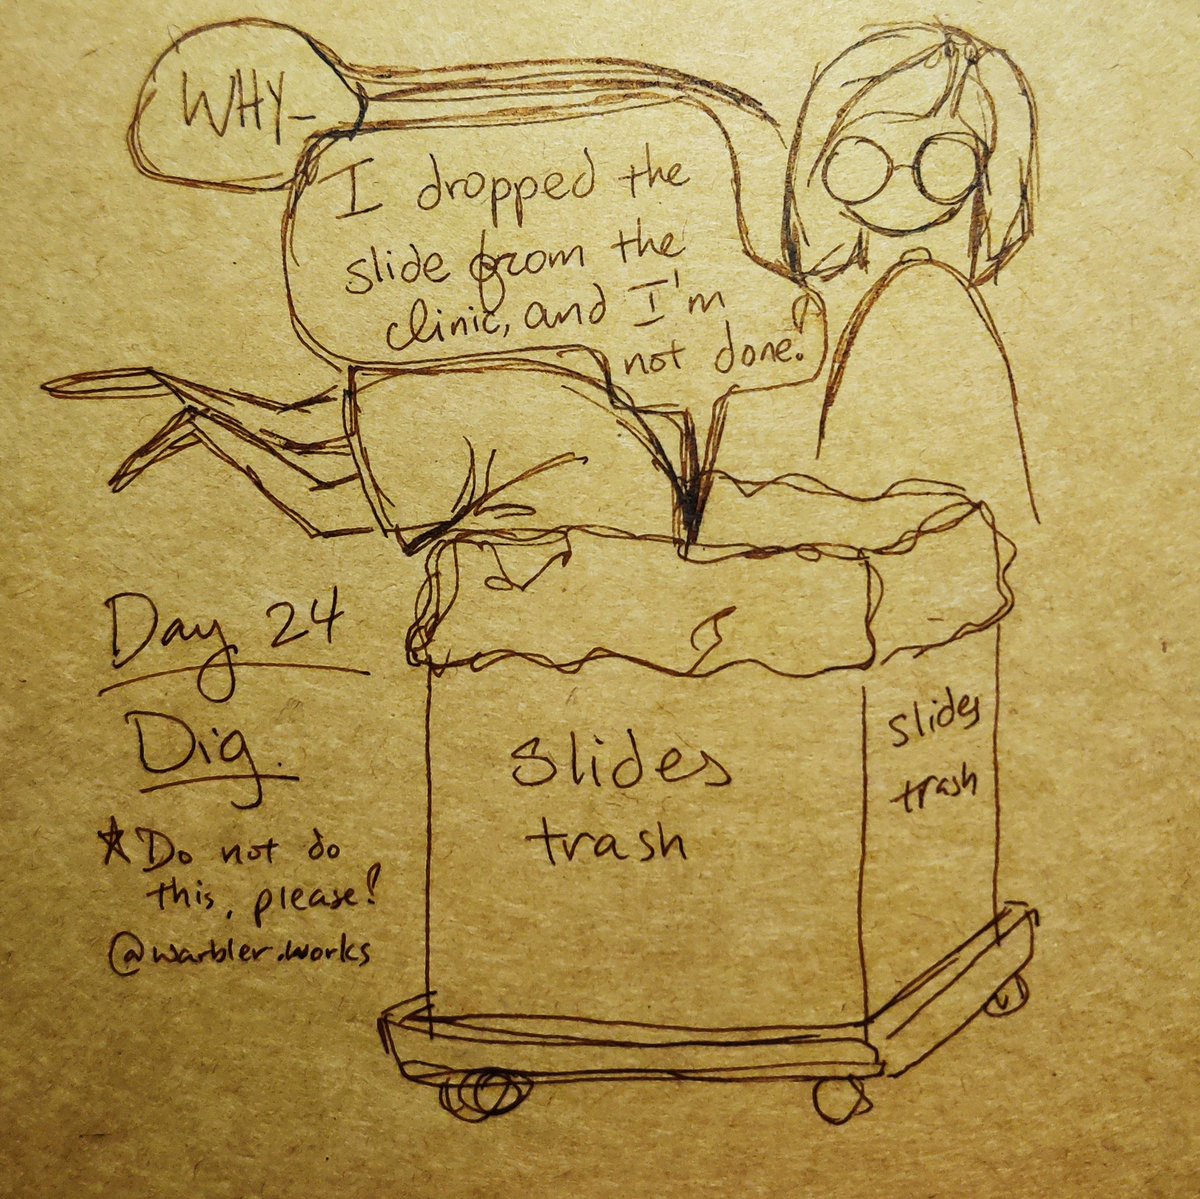 WHY-
I dropped the
slide from the
clinic, and I'm
not done!
Day 24
Dig.
*Do not do
this, please!
@warbler.works
Slides
trash
slides
trash